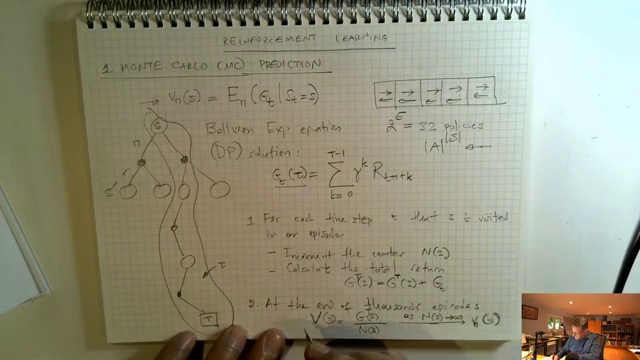 REINFORCEMENT LEARNING
1. MONTE CARLO (MC) PREDICTION
→ V_π(s) = E_π(G_t | S_t = s)
2^5 = 32 policies
|A|^|S| ←
Bellman Exp equation
(DP) solution:
G_t(τ) = Σ_{k=0}^{T-1} γ^k R_{t+1+k}
S
π
r
s'
τ
T
1 For each time step t that s is visited
in an episode
- Increment the counter N(s)
- Calculate the total return
G^T(s) = G^T(s) + G_t
2. At the end of thousands episodes
V(s) = G(s)/N(s) as N(s)→∞ → V_π(s)